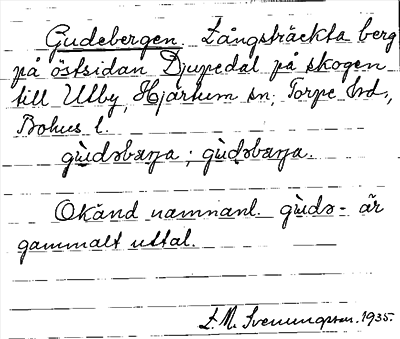 Gudebergen. Långsträckta berg
på östsidan Djupedal på skogen
till Utby, Hjärtum sn, Torpe hd.,
Bohus l.
gùdəbæŋa ; gùdəbæŋa.
Okänd namnanl. gùdə- är
gammalt uttal.
L. M. Svenungsson. 1935.